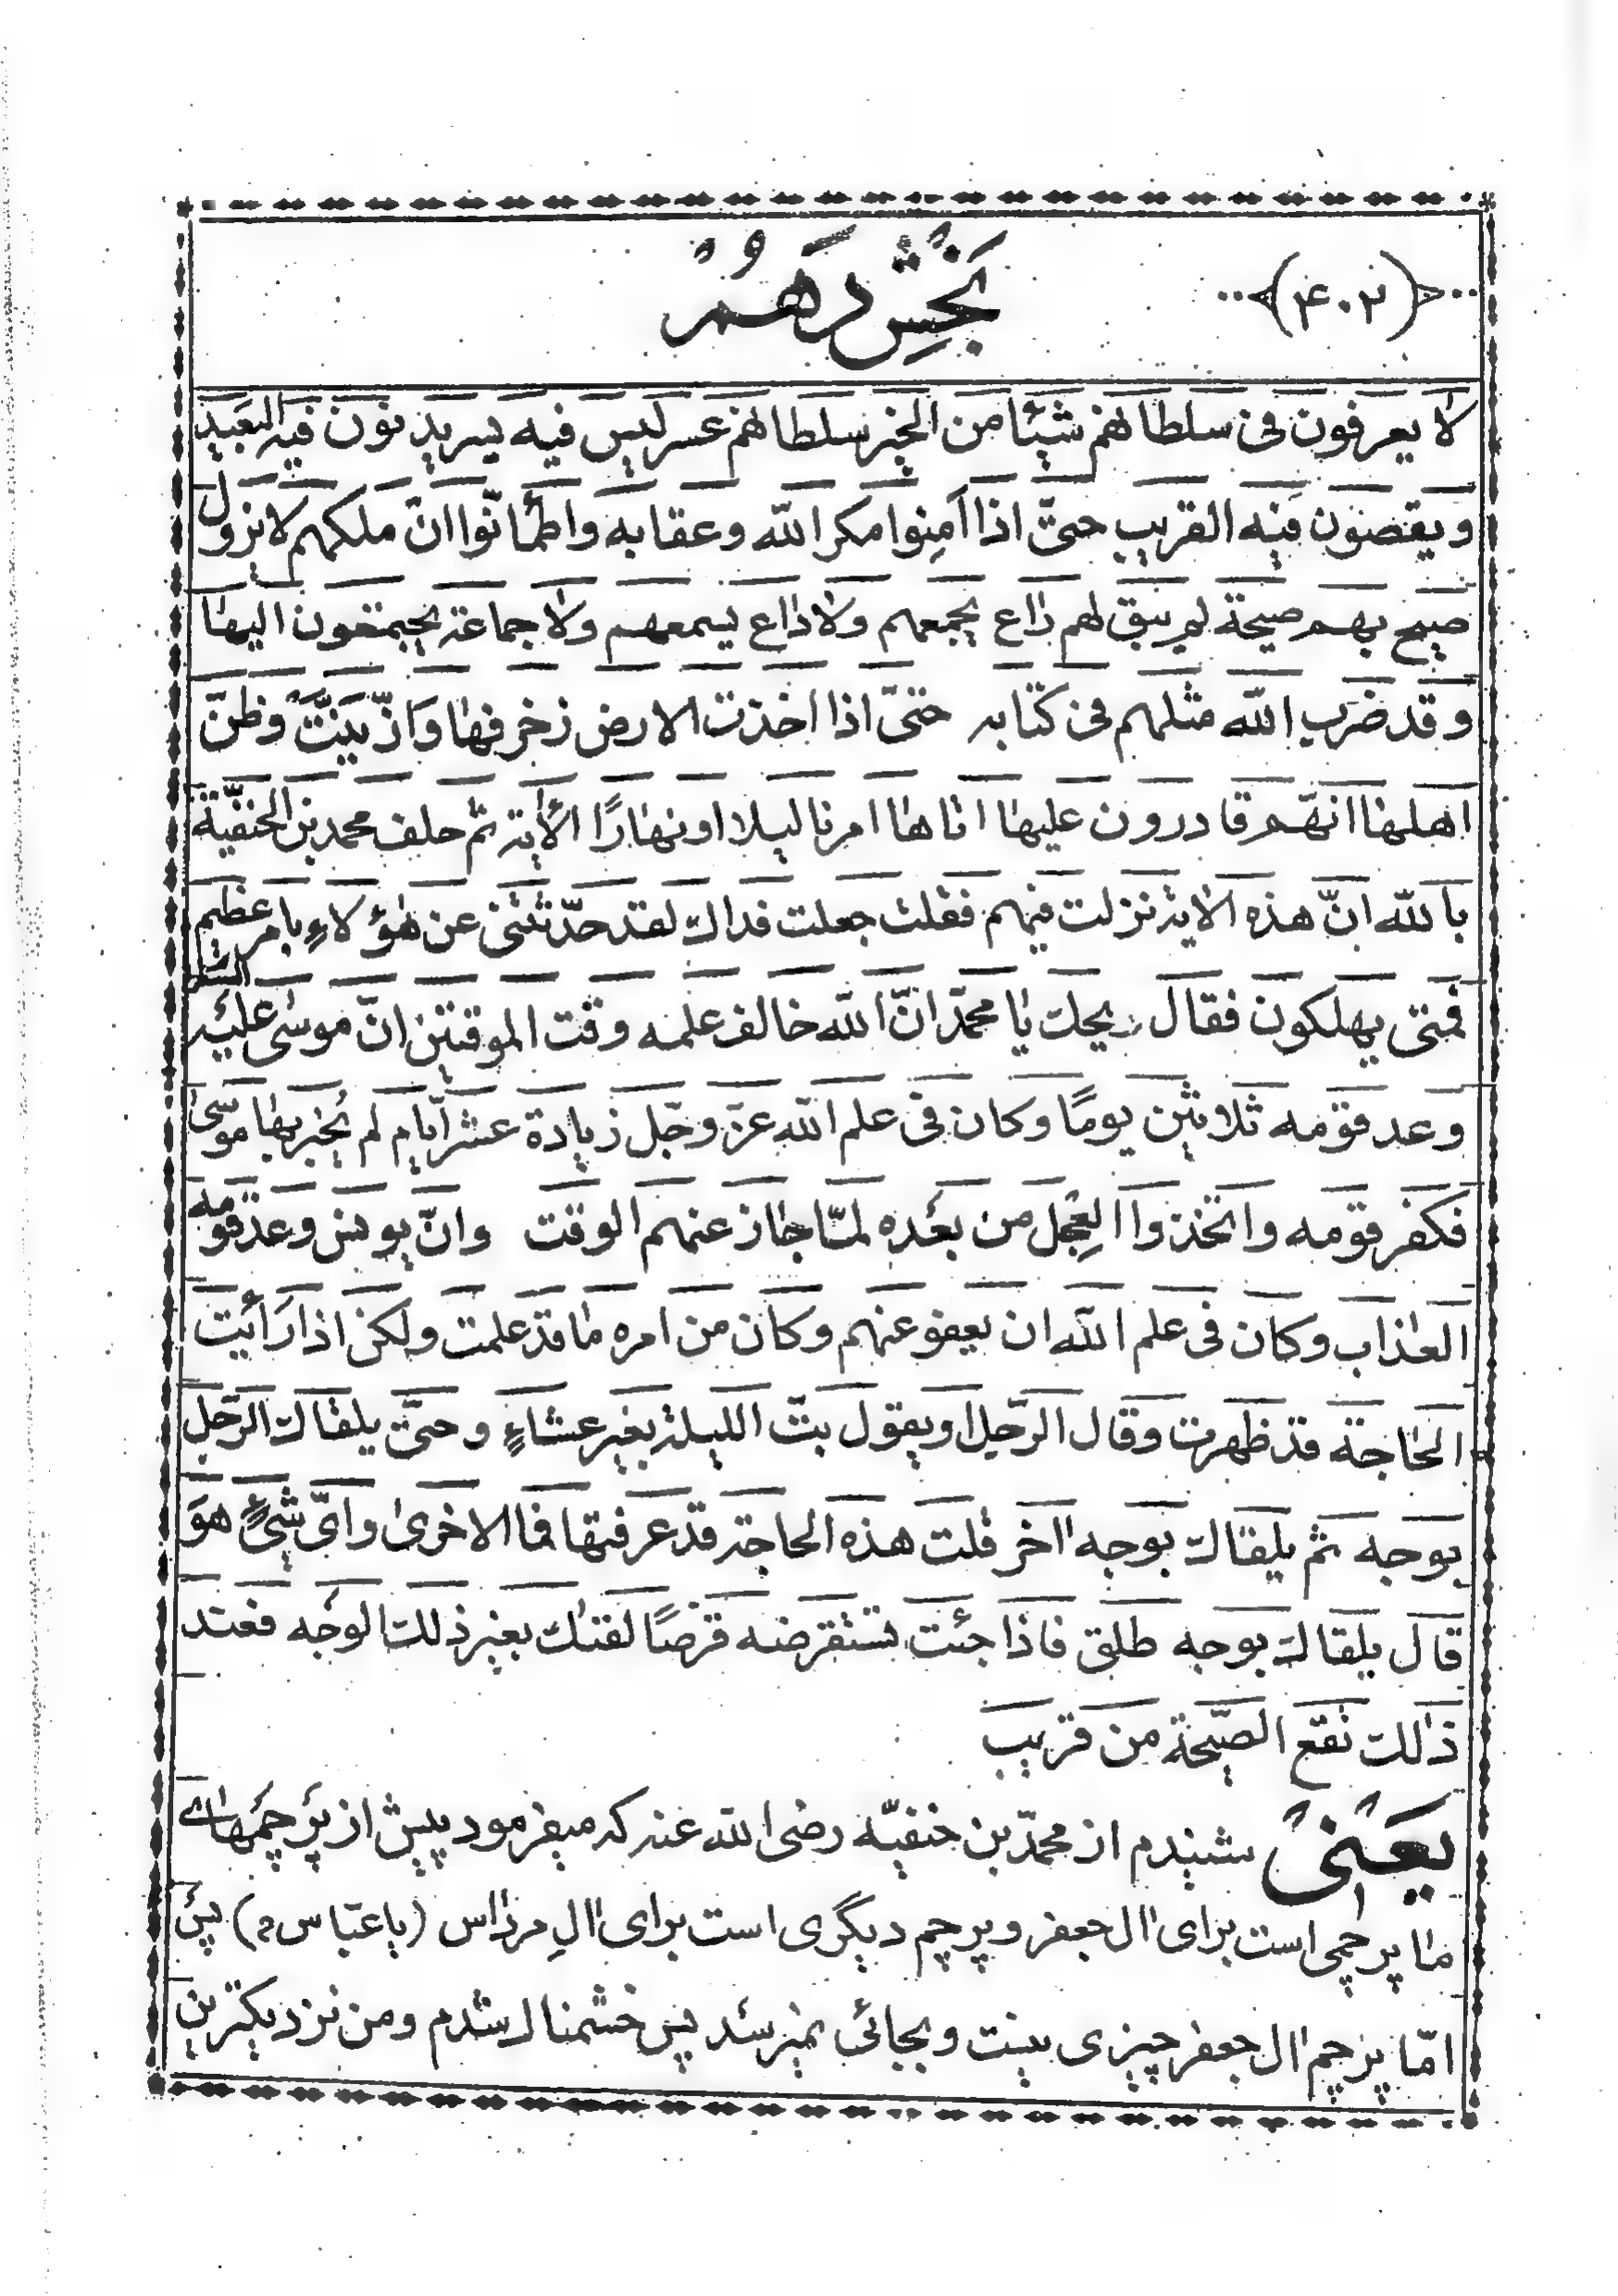 ﴿۴۰۲﴾
بخش دهم
لا یعرفون فی سلطانهم شیئا من الخیر سلطانهم عسر لیس فیه یسر یدنون فیه البعید
و یقصون فیه القریب حتّی اذا اَمِنوا مکر الله وعقابه واطمأنّوا انّ ملکهم لا یزول
صیح بهم صیحة لم یبق لهم راع یجمعهم ولا داع یسمعهم ولا جماعة یجتمعون الیها
وقد ضَرب الله مثلهم فی کتابه حتّی اذا اخذت الارض زخرفها وَازّیّنَتْ وظنّ
اهلها انهّم قادرون علیها اتاها امرنا لیلا او نهارًا الأیة ثم حلف محمد بن الحنفیّة
بالله انّ هذه الایة نزلت فیهم فقلت جعلت فداک لقد حدّثتنی عن هؤلاءِ بامر عظیم
فمتی یهلکون فقال ویحک یا محمّد انّ الله خالف علمه وقت الموقتین انّ موسی علیه السلام
وعد قومه ثلاثین یومًا وکان فی علم الله عزّ وجّل زیادة عشر ایّام لم یُخبر بها موسی
فکفر قومه واتخذوا العِجْل من بعْده لمّا جاز عنهم الوقت وانّ یونس وعد قومه
العذاب وکان فی علم الله ان یعفو عنهم وکان من امره ما قد علمت ولکن اذا رَأیت
الحاجة قد ظهرت وقال الرّجل او یقول بتّ اللیلة بغیر عشاءٍ وحتیّ یلقاک الرّجل
بوجه ثم یلقاک بوجه اخر قلت هذه الحاجة قد عرفتها فما الاخری وایّ شیءٍ هوَ
قال یلقاک بوجه طلق فاذا جئت تستقرضه قرضًا لقیک بغیر ذلک الوجه فعند
ذالک تقع الصّیحة من قریب
یعنی شنیدم از محمّد بن حنفیّه رضی الله عنه که میفرمود پیش از پرچمهای
ما پرچمی است برای ال جعفر و پرچم دیگری است برای الِ مرداس (یا عبّاس م) پس
امّا پرچم ال جعفر چیزی نیست و بجائی نمیرسد پس خشمناک شدم و من نزدیکترین